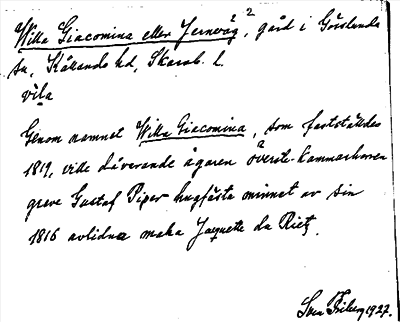 Villa Giacomina eller Jernväg 2, gård i Gösslunda
sn, Kållands hd, Skarab. l.
vila
Genom namnet Villa Giacomina, som fastställdes
1819, ville dåvarande ägaren överste-kammarherren
greve Gustaf Piper hugfästa minnet av sin
1816 avlidna maka Jaquette du Rietz.
Sven Friberg 1927.